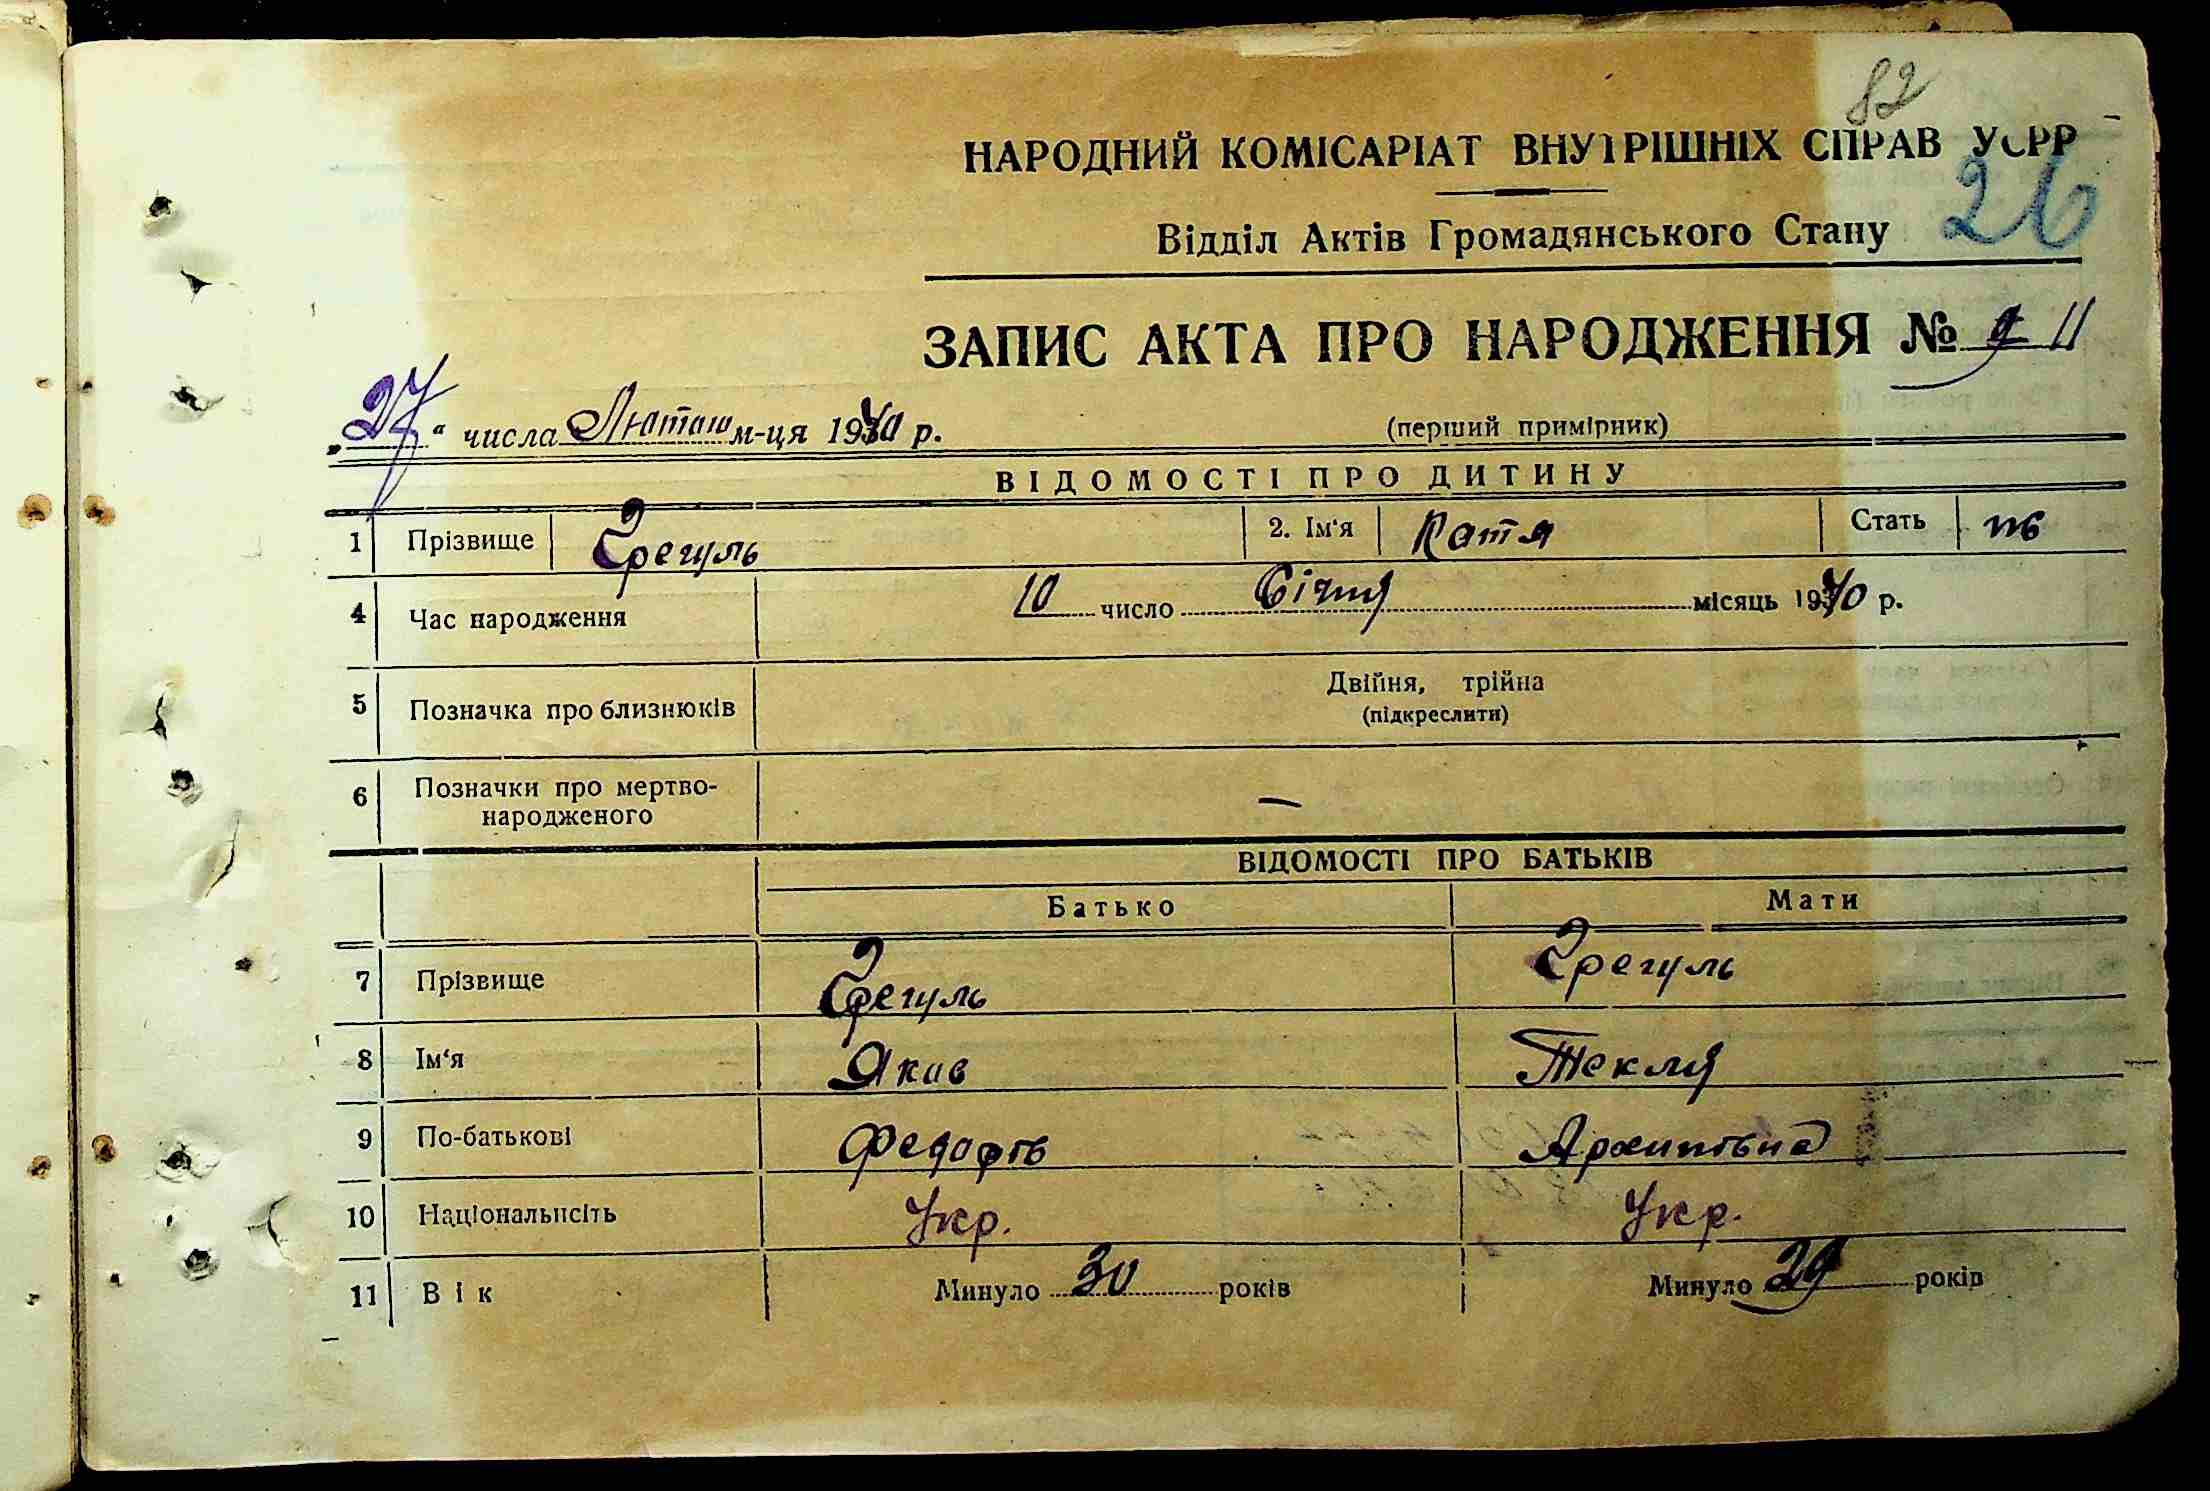 82
НАРОДНИЙ КОМІСАРІАТ ВНУТРІШНІХ СПРАВ УСРР
26
Відділ Актів Громадянського Стану
ЗАПИС АКТА ПРО НАРОДЖЕННЯ № 9 11
„27“ числа Лютаго м-ця 1940 р. (перший примірник)
ВІДОМОСТІ ПРО ДИТИНУ
1 Прізвище Грегуль 2. Ім‘я Катя Стать
4 Час народження 10 число Січня місяць 1940 р.
5 Позначка про близнюків Двійня, трійна
(підкреслити)
6 Позначки про мертво-
народженого —
ВІДОМОСТІ ПРО БАТЬКІВ
Батько Мати
7 Прізвище Грегуль Грегуль
8 Ім‘я Яков Текля
9 По-батькові Федорів Архипівна
10 Національнсіть Укр. Укр.
11 Вік Минуло 30 років Минуло 29 років